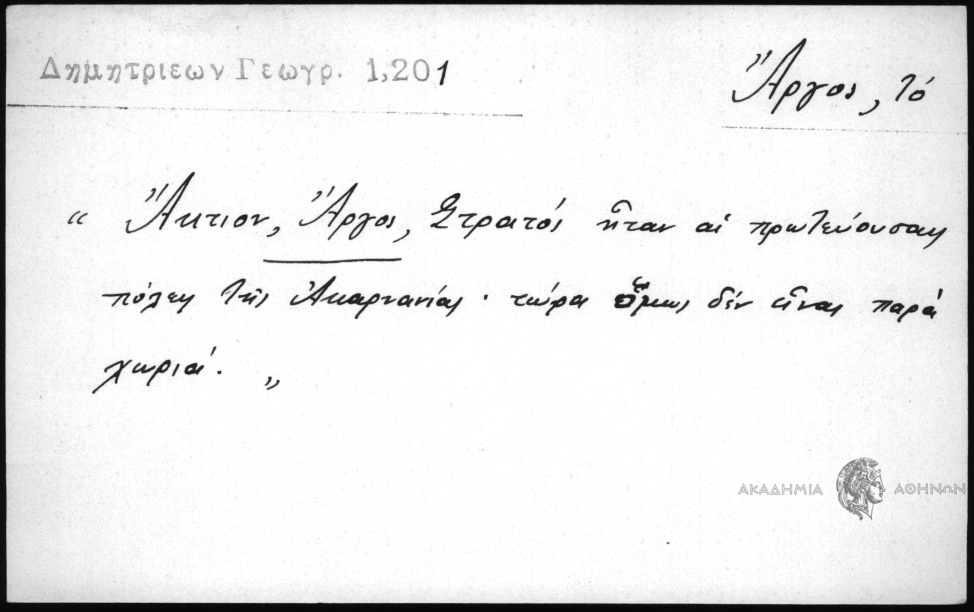 Δημητριεων Γεωγρ. 1,201
Ἄργος, τό
“ Ἄκτιον, Ἄργος, Στρατός ἦταν αἱ πρωτεύουσαι
πόλεις τῆς Ἀκαρνανίας · τώρα ὅμως δέν εἶναι παρά
χωριά. „
ΑΚΑΔΗΜΙΑ ΑΘΗΝΩΝ